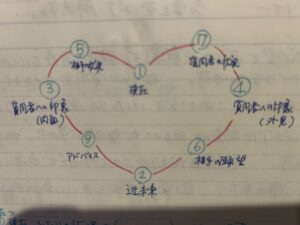 ⑤
相手の状況
⑦
質問者の状況
①
現在
③
質問者への印象
(内面)
④
質問者への印象
(外見)
⑧
アドバイス
⑥
相手の願望
②
近未来